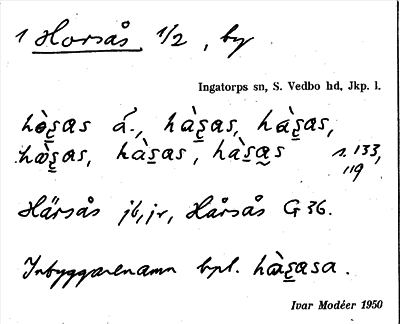 1 Horsås 1/2, by
Ingatorps sn, S. Vedbo hd, Jkp. l.
hò̤s̱as á., hàs̱as, hàs̱as,
hæ̀s̱as, hàs̱as, hàs̱a̰s s. 133,
119
Härsås jb, jr, Hårsås G 36.
Inbyggarenamn bpl. hàs̱asa.
Ivar Modéer 1950